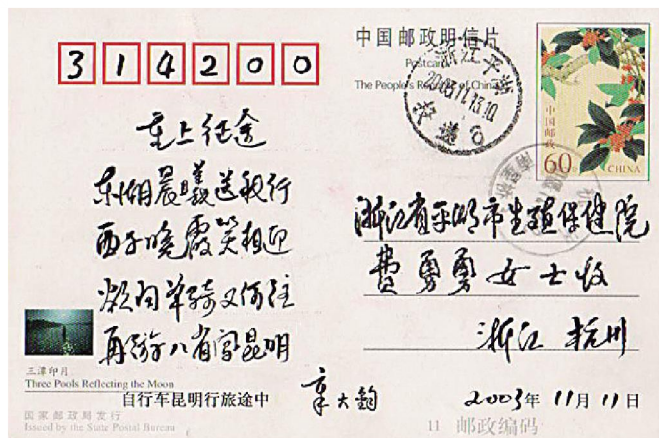 314200
中国邮政明信片
Postcard
The People's Republic of China
浙江平湖
投递
中国邮政
60分
CHINA
重上征途
东湖晨曦送我行
西子晓霞笑相迎
欲问单骑又何往
再游八省会昆明
浙江省平湖市生殖保健院
费勇勇女士收
浙江 杭州
三潭印月
Three Pools Reflecting the Moon
自行车昆明行旅途中
章大钧
2003年11月11日
国家邮政局发行
Issued by the State Postal Bureau
11 邮政编码